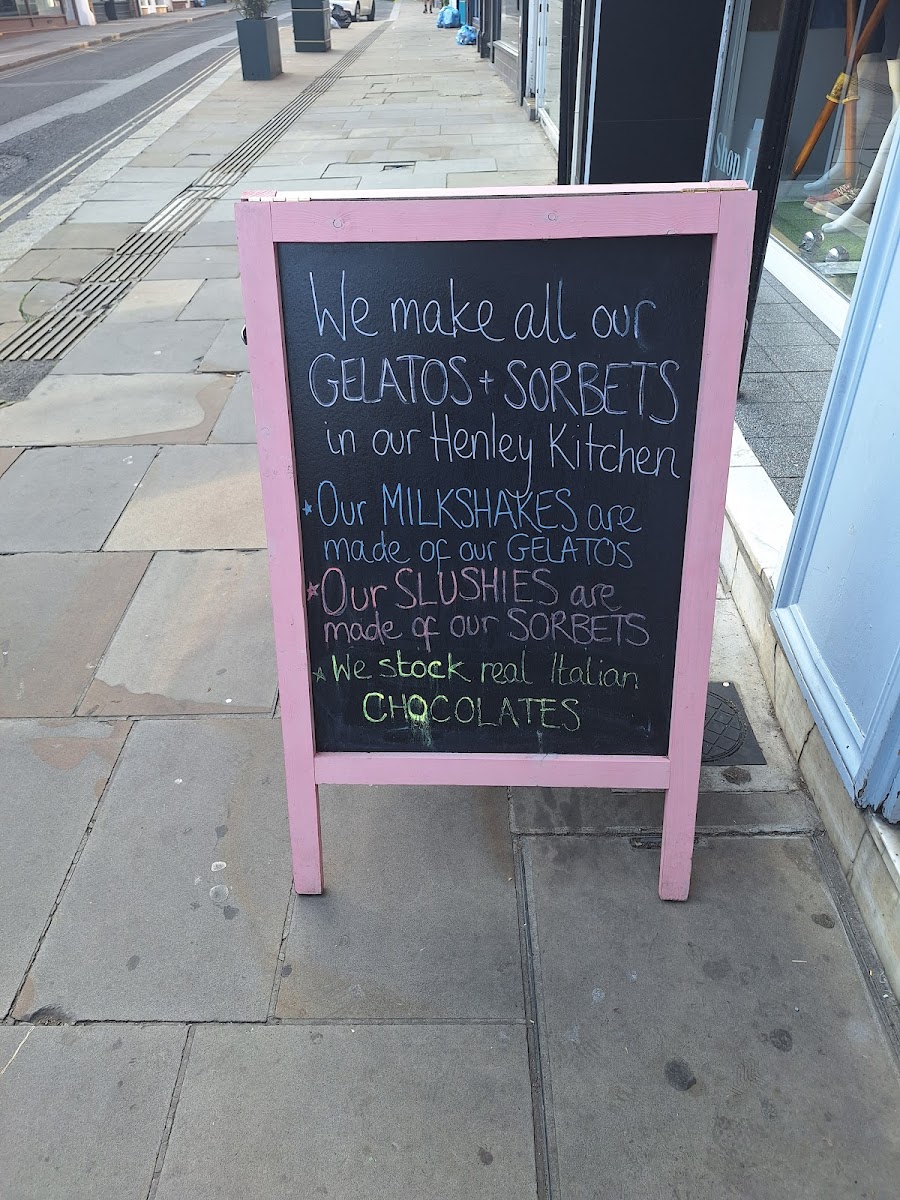 We make all our
GELATOS + SORBETS
in our Henley Kitchen
Our MILKSHAKES are
made of our GELATOS
Our SLUSHIES are
made of our SORBETS
We stock real Italian
CHOCOLATES
Shop